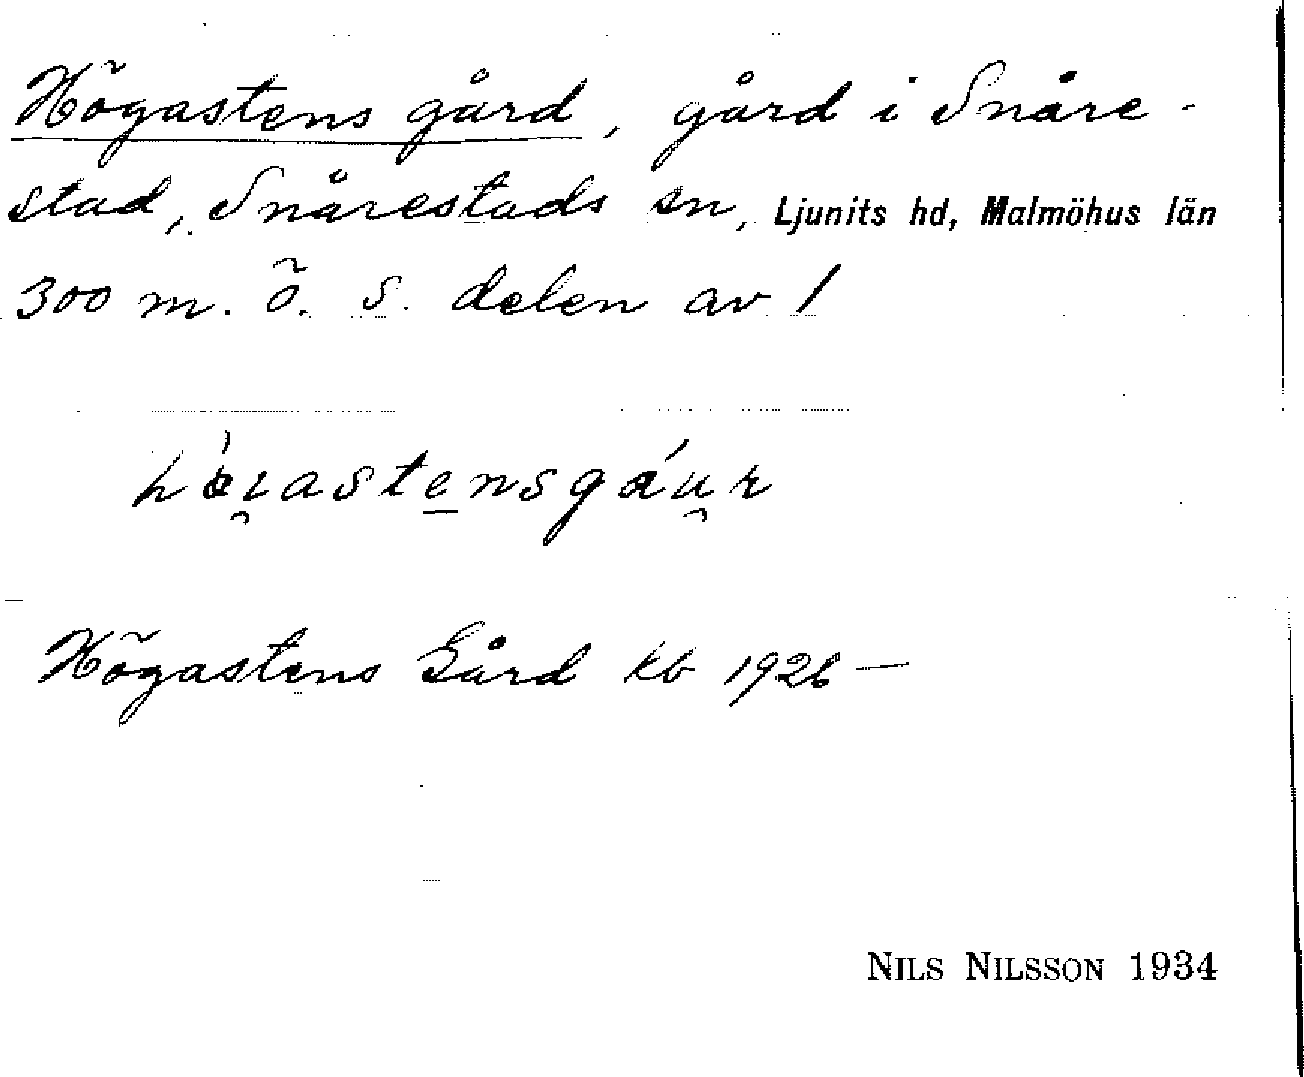 Högastens gård, gård i Snåre-
stad, Snårestads sn, Ljunits hd, Malmöhus län
300 m. ö. S. delen av 1
Högastens Gård kb 1926 —
NILS NILSSON 1934